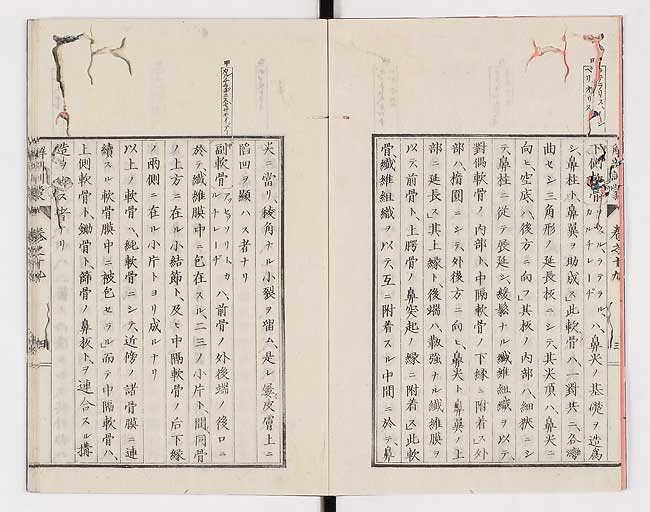 下側軟骨ハ、鼻尖ノ基礎ヲ造爲
シ、鼻柱ト、鼻翼ヲ助成ス」此軟骨ハ、一對共ニ、各灣
曲セシ三角形ノ延長板ニシテ、其尖頂ハ、鼻尖ニ
向ヒ、空底ハ後方ニ向フ」其板ノ内部ハ、細狹ニシ
テ、鼻柱ニ從テ蔓延シ、緩鬆ナル纖維組織ヲ以テ、
對偶軟骨ノ内部ト、中隔軟骨ノ下縁ニ附着ス」外
部ハ、楕圓ニシテ、外後方ニ向ヒ、鼻尖ト、鼻翼ノ上
部ニ延長ス」其上縁ト、後端ハ、緻強ナル纖維膜ヲ
以テ、前骨ト、上腭骨ノ鼻突起ノ縁ニ附着ス」此軟
骨纖維組織ヲ以テ、互ニ附着スル中間ニ於テ、鼻
尖ニ當リ、稜角ナル小裂ヲ留ム、是レ屢皮膚上ニ
陷凹ヲ顯ハス者ナリ
副軟骨ハ、前骨ノ外後端ノ後ロニ
於テ纖維膜中ニ包在スル、二三ノ小片ト、間同骨
ノ上方ニ在ル小結節ト、及ヒ中隔軟骨ノ后下縁
ノ兩側ニ在ル小片トヨリ成ルナリ
以上ノ軟骨ハ、純軟骨ニシテ、近傍ノ諸骨膜ニ連
續スル軟骨膜中ニ被包セラル」而テ中隔軟骨ハ、
上側軟骨ト、鋤骨ト、篩骨ノ鼻板トヲ連合スル搆
造ヲ